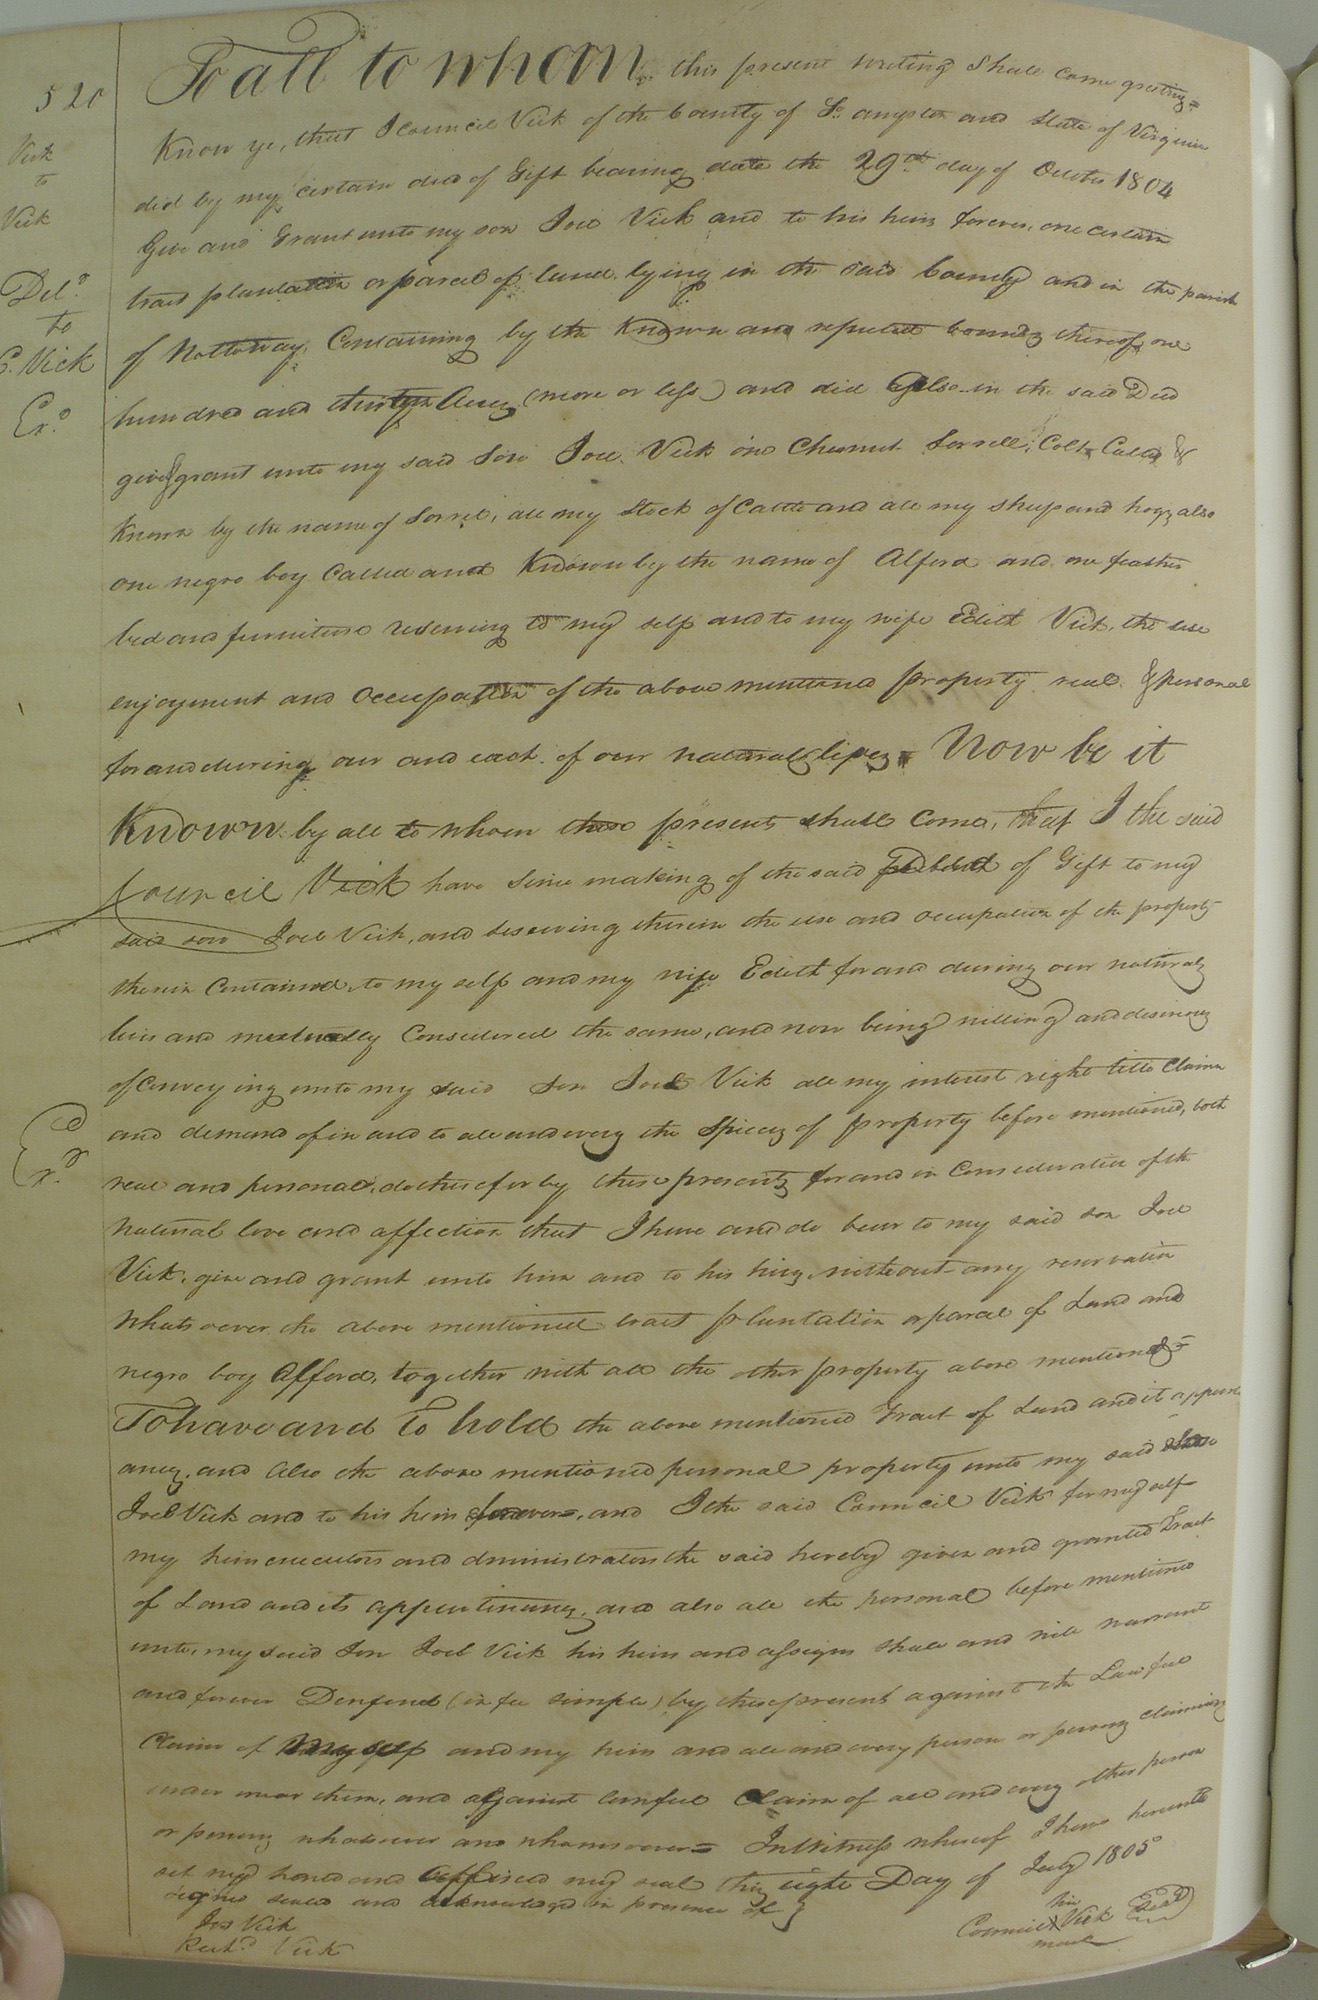 520
Vick
to
Vick
Del.d
to
C. Vick
Ex.d
Ex.d
To all to whom this present writing Shall Come greeting=
Know ye, that I Council Vick of the County of So. ampton and State of Virginia
did by my certain deed of Gift bearing date the 29th day of October 1804
Give and Grant unto my son Joel Vick and to his heirs forever, one certain
tract plantation or parcel of land lying in the said County and in the parish
of Nottoway Containing by the Known and reputed bounds thereof, one
hundred and thirty Acres (more or less) and did also in the said Deed
give & grant unto my said Son Joel Vick one Chesnut Sorrell, Colt Called &
Known by the name of Sorril, all my Stock of Cattle and all my sheep and hogs, also
one negro boy Called and Known by the name of Alford and one feather
bed and furniture reserving to my self and to my wife Edith Vick, the use
enjoyment and Occupation of the above mentiond property real & personal
for and during our and each of our natural lives. Now be it
Known by all to whom these presents shall Come, that I the said
Council Vick have Since making of the said of Gift to my
said son Joel Vick, and reserving therein the use and occupation of the property
therein Contained, to my self and my wife Edith for and during our natural
lives and Considered the same, and now being willing and desirous
of Conveying unto my said Son Joel Vick all my interest right title Claim
and demand of in and to all and every the Spicies of property before mentioned, both
real and personal, do therefor by these presents for and in Consideration of the
natural love and affection that I have and do bear to my said son Joel
Vick, give and grant unto him and to his heirs, without any reservation
whatsoever the above mentioned tract plantation or parcel of Land and
negro boy Alford, together with all the other property above mentioned=
To have and to hold the above mentioned Tract of Land and it appurt
ances, and Also the above mentioned personal property unto my said
Joel Vick and to his heirs forever=, and I the said Council Vick for my self
my heirs executors and dministrators the said hereby given and granted Tract
of Land and its appurtinances, and also all the personal before mentioned
unto, my said Son Joel Vick his heirs and assigns shall and will warrant
and forever Denfend (in fee simple) by these present against the Lawfull
Claim of Myself and my heirs and all and every person or persons claiming
under me or them, and against lawfull Claim of all and every other person
or persons whatsoever and whomsoever= In Witness whereof I have hereunto
set my hand and Affixed my seal this eight Day of July 1805
signed seald and acknowledged in presence of }
Jos Vick
Rich.d Vick
his
Council X Vick Seal
mark